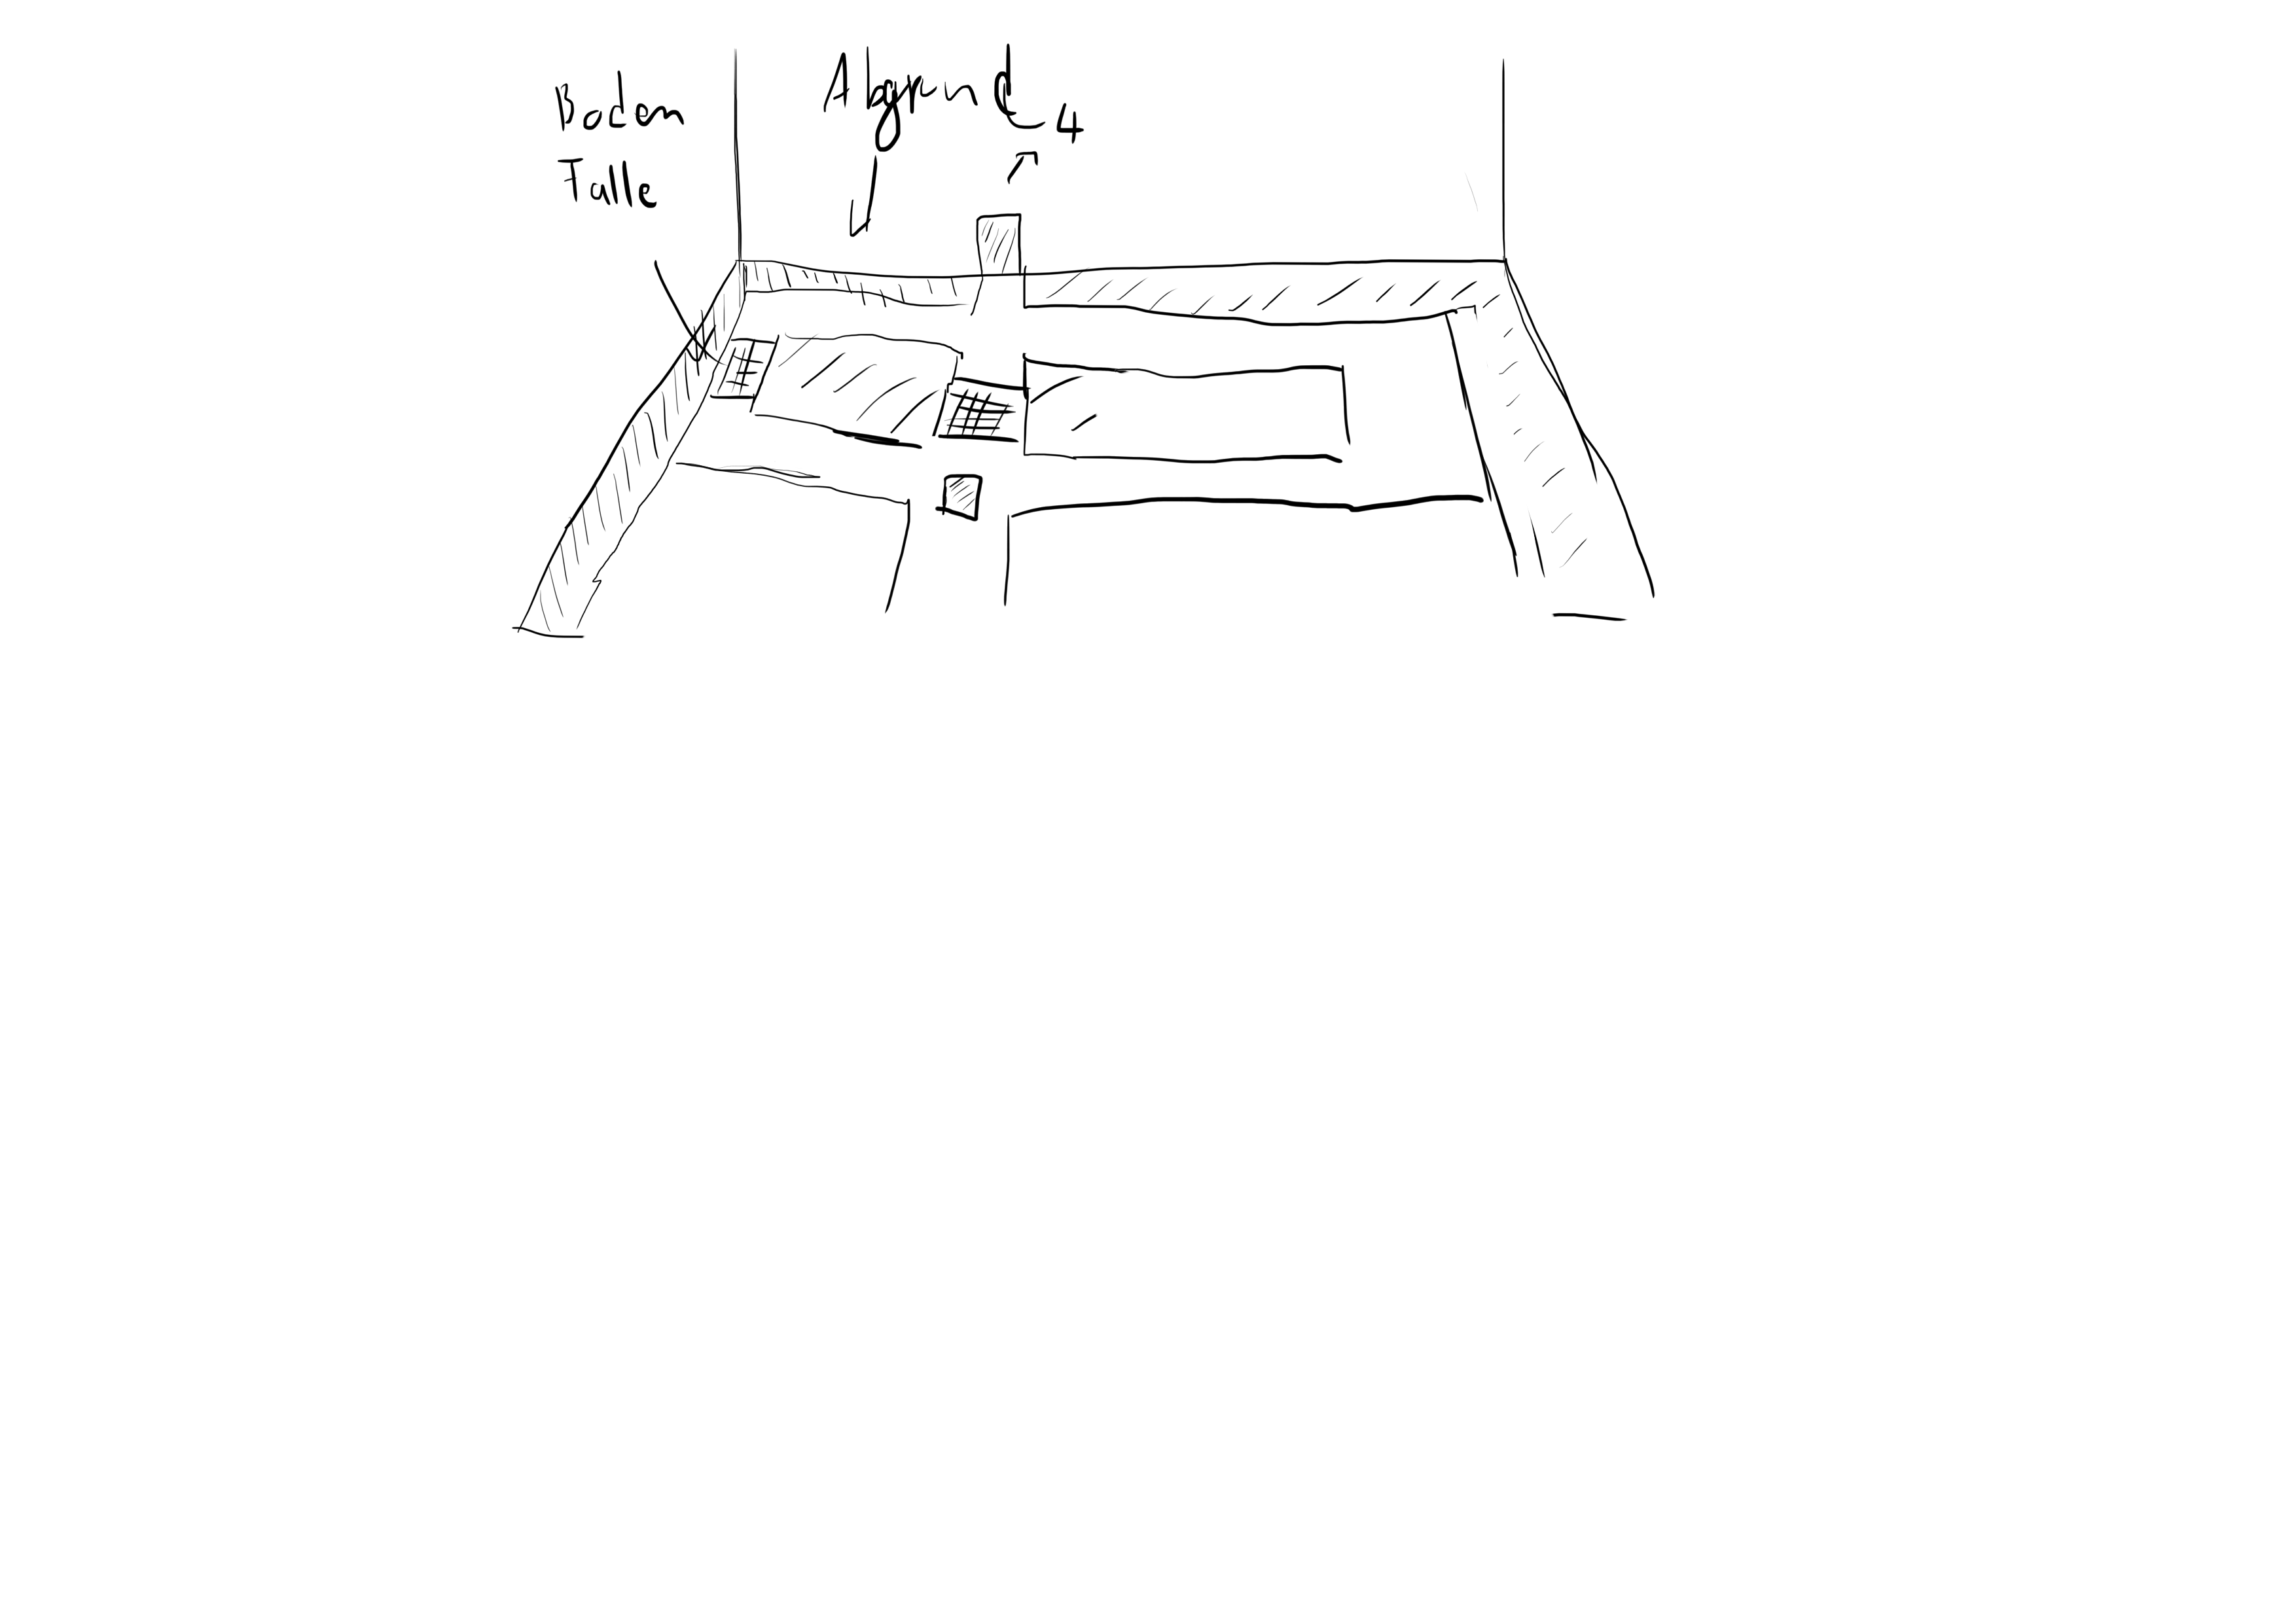 Boden
Falle
Abgrund
4